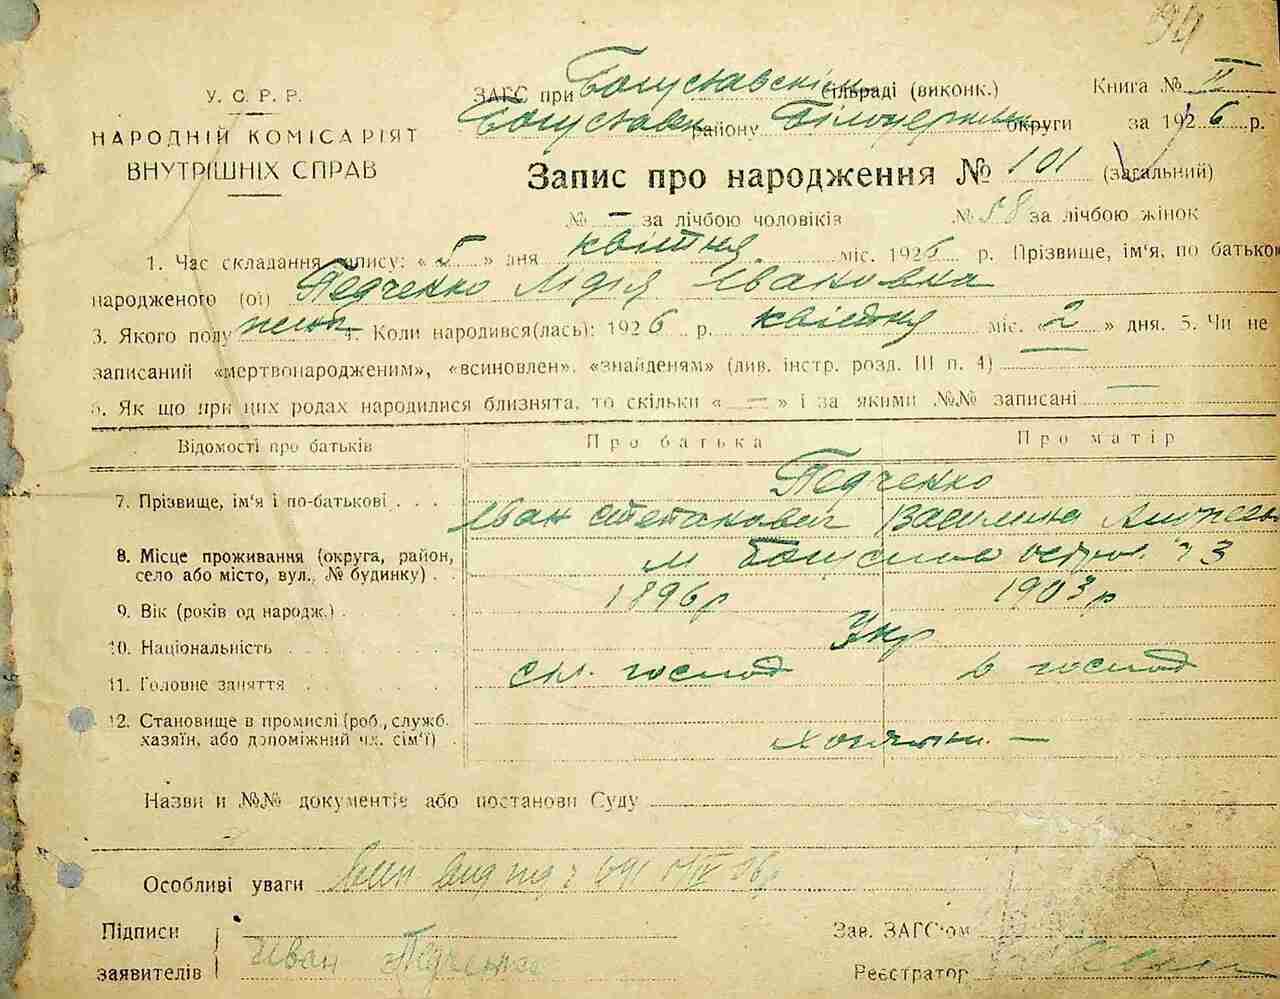 94
У. С. Р. Р.
НАРОДНІЙ КОМІСАРІЯТ
ВНУТРІШНІХ СПРАВ
ЗАГС при Богуславскім сільраді (виконк.) Книга № II
Богуславск району Білоцерківськ округи за 1926 р.
Запис про народження № 101 (загальний)
№ — за лічбою чоловіків № 58 за лічбою жінок
1. Час складання запису: « 5 » дня квітня міс. 1926 р. Прізвище, ім'я, по батькові
народженого (ої) Педченко Лідія Івановна
3. Якого полу жіноч 4. Коли народився(лась): 1926 р. квітня міс. « 2 » дня. 5. Чи не
записаний «мертвонародженим», «всиновлен», «знайденям» (див. інстр. розд. III п. 4) —
6. Як що при цих родах народилися близнята, то скільки « — » і за якими №№ записані —
Відомості про батьків Про батька Про матір
7. Прізвище, ім'я і по-батькові . . . Педченко
Іван Степанович Василина
8. Місце проживання (округа, район,
село або місто, вул., № будинку) . . м Богуслав 73
9. Вік (років од народж.) . 1896 р 1903 р
10. Національність Укр
11. Головне заняття сіл. господ в господ
12. Становище в промислі (роб., служб.
хазяїн, або допоміжний чл. сім'ї) . —
Назви и №№ документів або постанови Суду
Особливі уваги
Підписи
заявителів Иван Педченко
Зав. ЗАГС'ом
Реєстратор